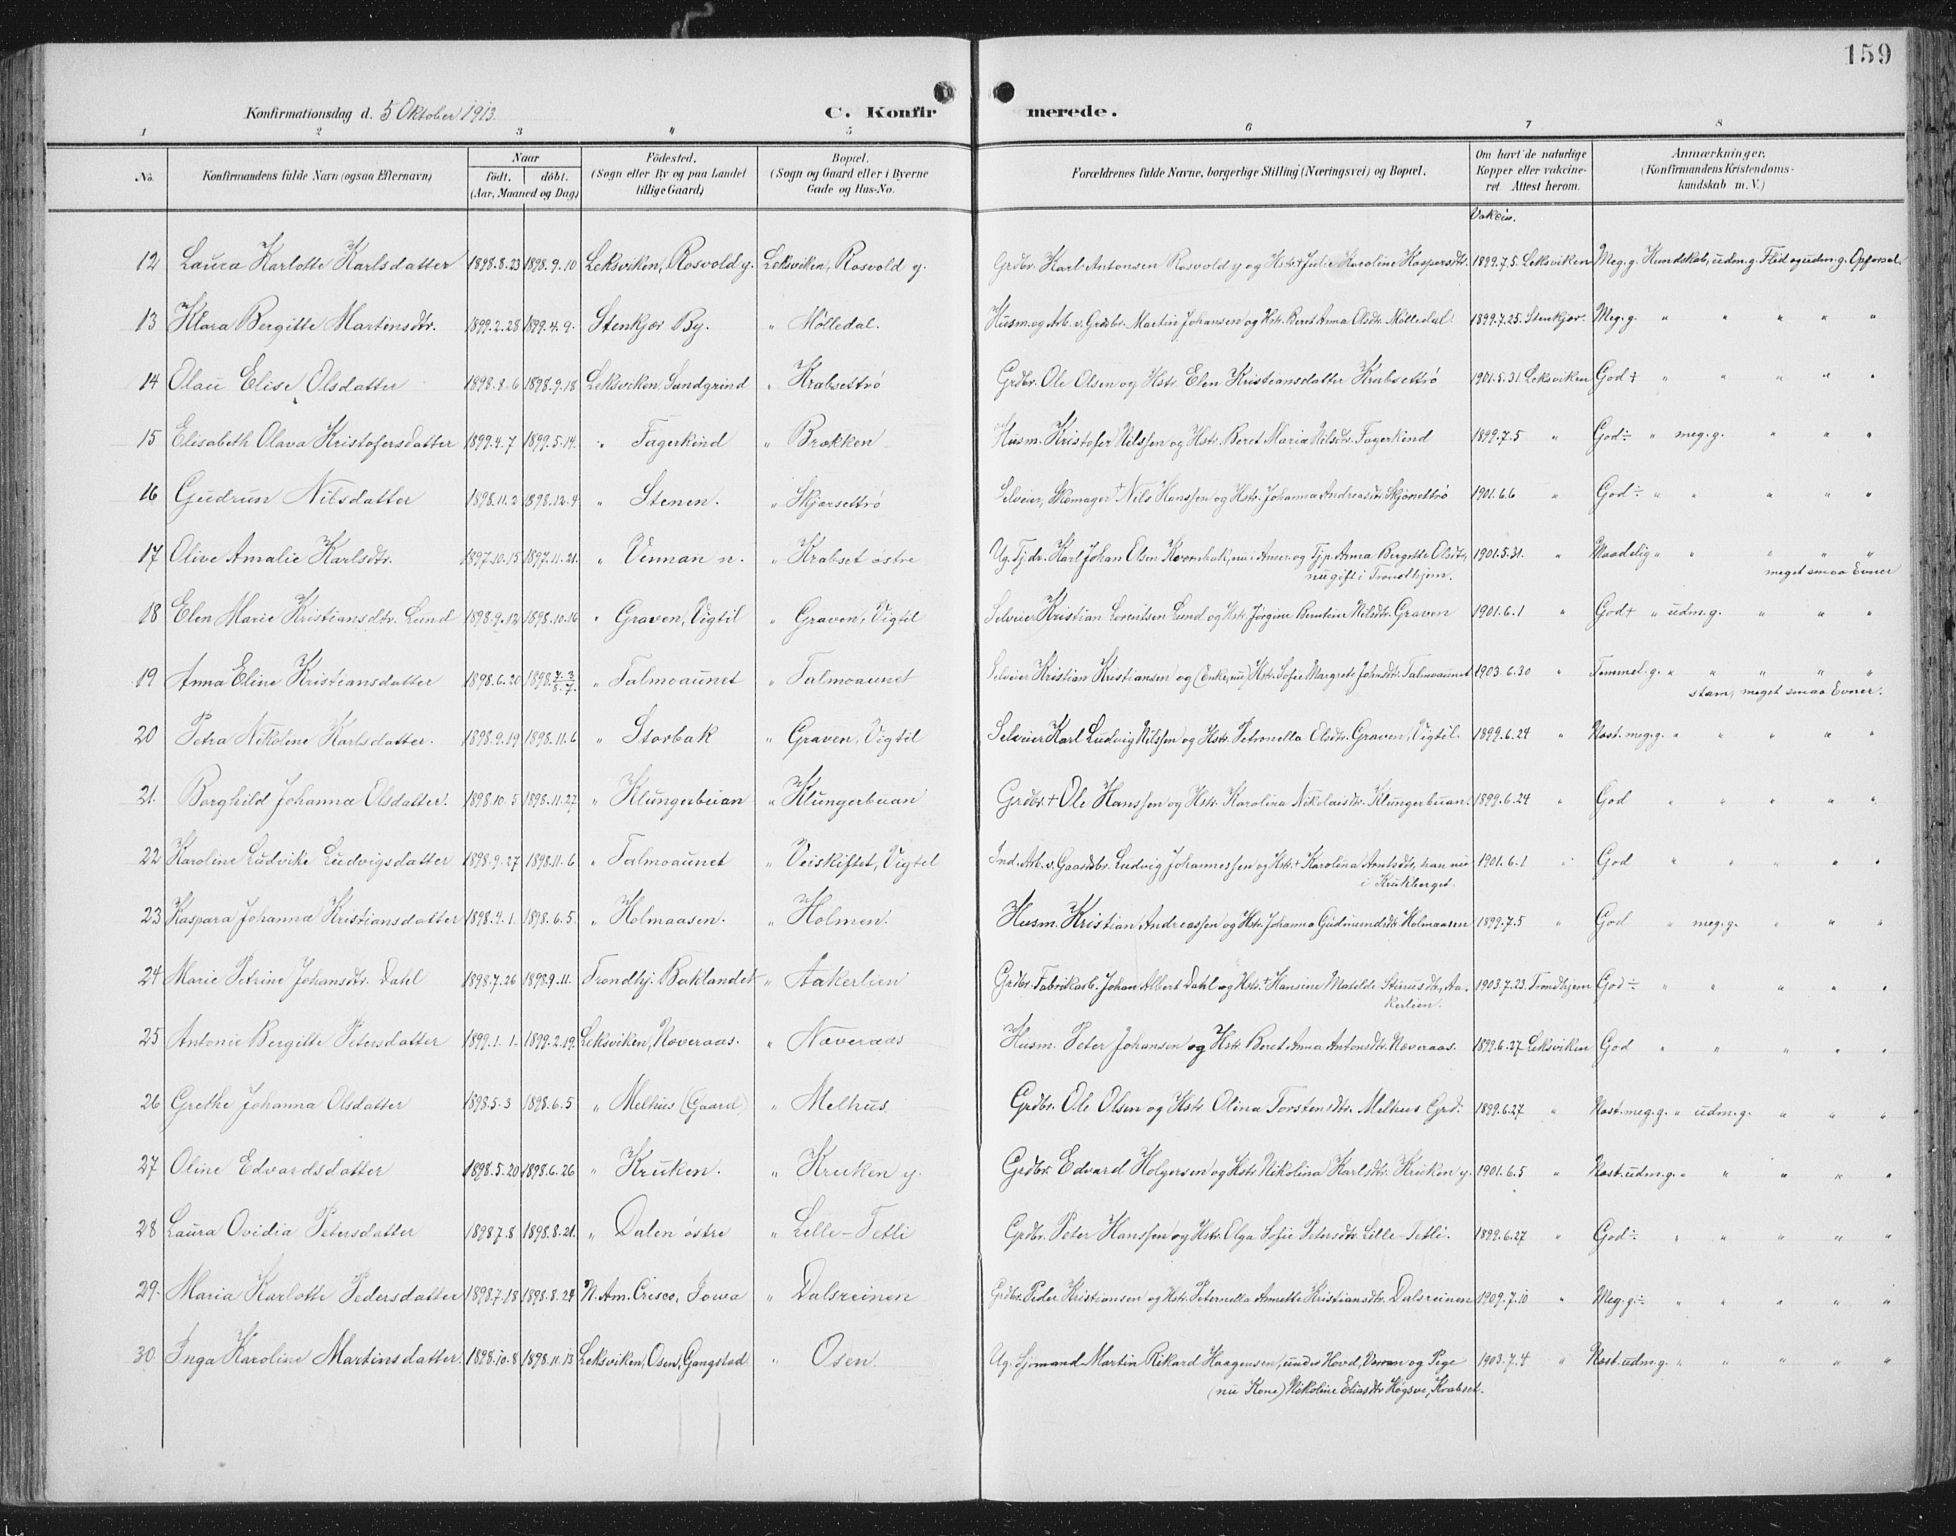 159
Konfirmationsdag d. 5 Oktober 1913.
C. Konfirmerede.
1 2 3 4 5 6 7 8
No. Konfirmandens fulde Navn (ogsaa Efternavn) Naar født. døbt. (Aar, Maaned og Dag) Fødested. (Sogn eller By og paa Landet tillige Gaard) Bopæl. (Sogn og Gaard eller i Byerne Gade og Hus-No. Forældrenes fulde Navne, borgerlige Stilling (Næringsvei) og Bopæl. Om havt de naturlige Kopper eller vakcineret Attest herom. Anmærkninger. (Konfirmandens Kristendomskundskab m. V.)
Vakcin.
12 Laura Karlotte Karlsdatter 1898.8.23 1898.9.10 Leksviken, Rosvold y. Leksviken, Rosvold y. Grdbr. Karl Antonsen Rosvold y og Hstr + Julie Karoline Kaspersdtr. 1899.7.5. Leksviken Meg. g. Kundskab, udm. g. Flid og udm. g. Opførsel.
13 Klara Bergitte Martinsdtr. 1899.2.28 1899.4.9. Stenkjær By. " Mølledal. Husm. og Arb. v. Grdbr. Martin Johansen og Hstr. Beret Anna Olsdtr. Mølledal. 1899.7.25. Stenkjær. Meg. g. " " " " "
14 Olau Elise Olsdatter 1898.8.6 1898.9.18 Leksviken, Sundgrind " Krabsettrø Grdbr. Ole Olsen og Hstr. Elen Kristiansdatter Krabsettrø 1901.5.31 Leksviken God + " " " " "
15 Elisabeth Olava Kristofersdatter 1899.4.7 1899.5.14. " Fagerkind " Brækken Husm. Kristofer Nilssen og Hstr. Beret Maria Nilsdtr. Fagerkind 1899.7.5 " God ÷ " meg. g. " " "
16 Gudrun Nilsdatter 1898.11.2 1898.12.4 " Stenen. " Skjærsettrø Selveier, Skomager + Nils Hanssen og Hstr. Johanna Andreasdtr. Skjærsettrø 1901.6.6 " God ÷ " " " " "
17 Olive Amalie Karlsdtr. 1897.10.15 1897.11.21. " Vinnan n. " Krabset østre Ug. Tj.dr. Karl Johan Olsen Kvernbak, nu i Amer. og Tjp. Anna Bergitte Olsdtr, 1901.5.31. " Maadelig " " " " "
nu gift i Trondhjem. meget smaa Evner
18 Elen Marie Kristiansdtr. Lund 1898.9.12 1898.10.16 " Graven, Vigtil " Graven, Vigtil Selveier Kristian Lorentsen Lund og Hstr. Jørgine Berntine Nilsdtr. Graven 1901.6.1 " God + " udm. g. " " "
19 Anna Eline Kristiansdatter 1898.6.20 1898. 7.3 / 8.7. " Talmoaunet " Talmoaunet Selveier Kristian Kristiansen og (Enke, nu) Hstr. Sofie Margrete Johnsdtr. Talmoaunet 1903.6.30 " Temmel. g. " " " " "
stam, meget smaa Evner.
20 Petra Nikoline Karlsdatter. 1898.9.19 1898.11.6 " Storbak " Graven, Vigtil Selveier Karl Ludvig Nilssen og Hstr. Petronella Olsdtr. Graven, Vigtil. 1899.6.24 " Næst. meg. g. " " " " "
21. Borghild Johanna Olsdatter. 1898.10.5 1898.11.27 " Klungerbuan " Klungerbuan Grdbr. + Ole Hanssen og Hstr. Karolina Nikolaisdtr. Klungerbuan. 1899.6.24 " God " " " " "
22 Karoline Ludvike Ludvigsdatter 1898.9.27 1898.11.6 " Talmoaunet " Veiskiftet, Vigtel Ind. Arb. v. Gaardbr. Ludvig Johannessen og Hstr. + Karolina Arntsdtr, han nu 1901.6.1 " God " " " " "
i Krukberget.
23 Kaspara Johanna Kristiansdatter 1898.4.1. 1898.6.5. " Holmaasen. " Holmen. Husm. Kristian Andreassen og Hstr. Johanna Gudmundsdtr. Holmaasen 1899.7.5 " God " meg. g. " " "
24 Marie Petrine Johansdtr. Dahl 1898.7.26 1898.9.11. Trondhj. Baklandet " Aakerlien Grdbr. Fabrikarb. Johan Albert Dahl og Hstr. + Hansine Matilde Stinusdtr, Aa- 1903.7.23. Trondhjem God ÷ " " " " "
kerlien.
25 Antonie Bergitte Petersdatter 1899.1.1. 1899.2.19. Leksviken, Næveraas. " Næveraas Husm. Peter Johansen og Hstr. Beret Anna Antonsdtr. Næveraas. 1899.6.27 Leksviken God " " " " "
26 Grethe Johanna Olsdatter 1898.5.3 1898.6.5 " Melhus (Gaard) " Melhus. Grdbr. Ole Olsen og Hstr. Olina Torstensdtr. Melhus Grd. 1899.6.27 " Næst. meg. g. " udm. g. " " "
27 Oline Edvardsdatter 1898.5.20 1898.6.26 " Kruken. " Kruken y. Grdbr. Edvard Holgersen og Hstr. Nikolina Karlsdtr. Kruken y. 1901.6.5 " Næst. udm. g. " " " " "
28 Laura Ovidia Petersdatter 1898.7.8 1898.8.21. " Dalen østre " Lille-Tetli Grdbr. Peter Hanssen og Hstr. Olga Sofie Petersdtr. Lille-Tetli. 1899.6.27 " God ÷ " " " " "
29. Maria Karlotte Pedersdatter 1898.7.18 1898.8.24 N. Am. Cresco, Iowa " Dalsreinen Grdbr. Peder Kristiansen og Hstr. Peternella Annette Kristiansdtr. Dalsreinen 1909.7.10 " Meg. g. ÷ " " " " "
30. Inga Karoline Martinsdatter. 1898.10.8 1898.11.13 Leksviken, Osen, Gangstad " Osen Ug. Sjømand Martin Rikard Haagensen, under Hovd, Værran og Pige 1903.7.4 " Næst. udm. g. " " " " "
(nu Kone) Nikoline Eliasdtr Høgsve, Krabset.